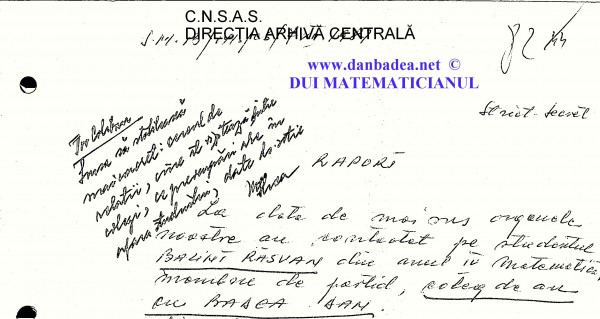 C.N.S.A.S.
DIRECȚIA ARHIVĂ CENTRALĂ
www.danbadea.net ©
DUI MATEMATICIANUL
Strict-secret
să stabilească
mai concret: cercul de
relații, cine îl
colegi, ce preocupări are în
afara
RAPORT
La data de mai sus organele
noastre au contactat pe studentul
BALINT RĂSVAN din anul IV Matematică,
membru de partid, coleg de an
cu BADEA DAN.